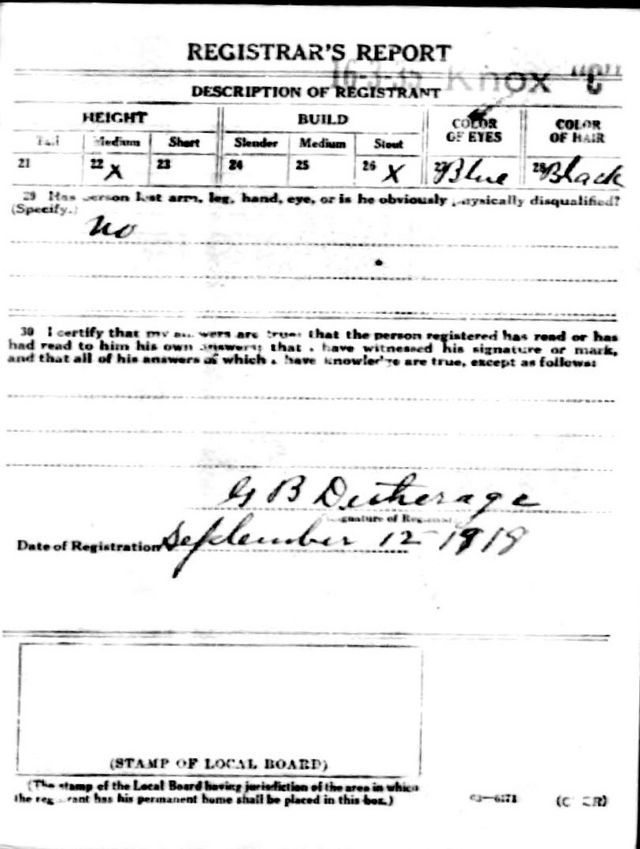 REGISTRAR'S REPORT
16-3-35 Knox "C"
DESCRIPTION OF REGISTRANT
HEIGHT BUILD COLOR OF EYES COLOR OF HAIR
Tall Medium Short Slender Medium Stout
21 22 X 23 24 25 26 X 27 Blue 28 Black
29 Has person lost arm, leg, hand, eye, or is he obviously physically disqualified?
(Specify.) no
30 I certify that my answers are true; that the person registered has read or has
had read to him his own answers; that I have witnessed his signature or mark,
and that all of his answers of which I have knowledge are true, except as follows:
G B Detherage
Signature of Registrar
Date of Registration September 12 1918
(STAMP OF LOCAL BOARD)
(The stamp of the Local Board having jurisdiction of the area in which
the registrant has his permanent home shall be placed in this box.)
03-6171 (OVER)